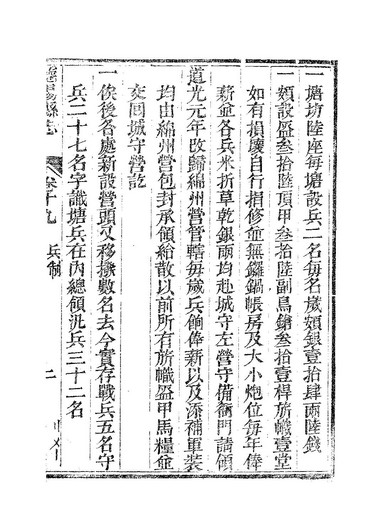 一塘坊陸座每塘設兵二名每名歲頒銀壹拾肆兩陸錢
一頒設盔叁拾陸頂甲叁拾陸副鳥鎗叁拾壹桿旂幟壹堂
如有損壞自行捐修並無鑼鍋帳房及大小炮位每年俸
薪並各兵米折草乾銀兩均赴城守左營守備衙門請領
道光元年改歸綿州營管轄每歲兵餉俸薪以及添補軍裝
均由綿州營包封承領給散以前所有旂幟盔甲馬糧並
交回城守營訖
一俟後各處新設營頭又移撥數名去今實存戰兵五名守
兵二十七名字識塘兵在內總領汛兵三十二名
縣志
卷十九
兵制
二